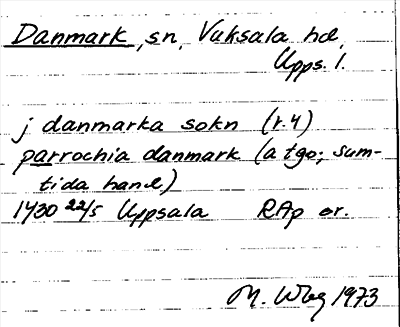 Danmark, sn, Vaksala hd,
Upps. l.
j danmarka sokn (r. 4)
parrochia danmark (a tgo; sum-
tida hand)
1430 22/5 Uppsala RAp or.
M. Wbg 1973